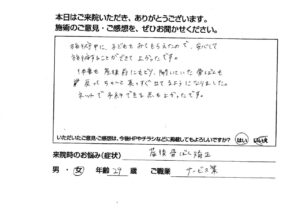 本日はご来院いただき、ありがとうございます。
施術のご意見・ご感想を、ぜひお聞かせください。
施術中に、子どもをみてもらえたので、安心して
施術することができて よかったです。
体重も 産後前にもどり、開いていた 骨ばんも
戻って ちゃんと 真っすぐ 立てるようになりました。
ネットで 予約できる点も よかったです。
いただいたご意見・ご感想は、今後HPやチラシなどに掲載してもよろしいですか? はい いいえ
来院時のお悩み(症状) 産後骨ばん矯正
男・女 年齢 29 歳 ご職業 サービス業